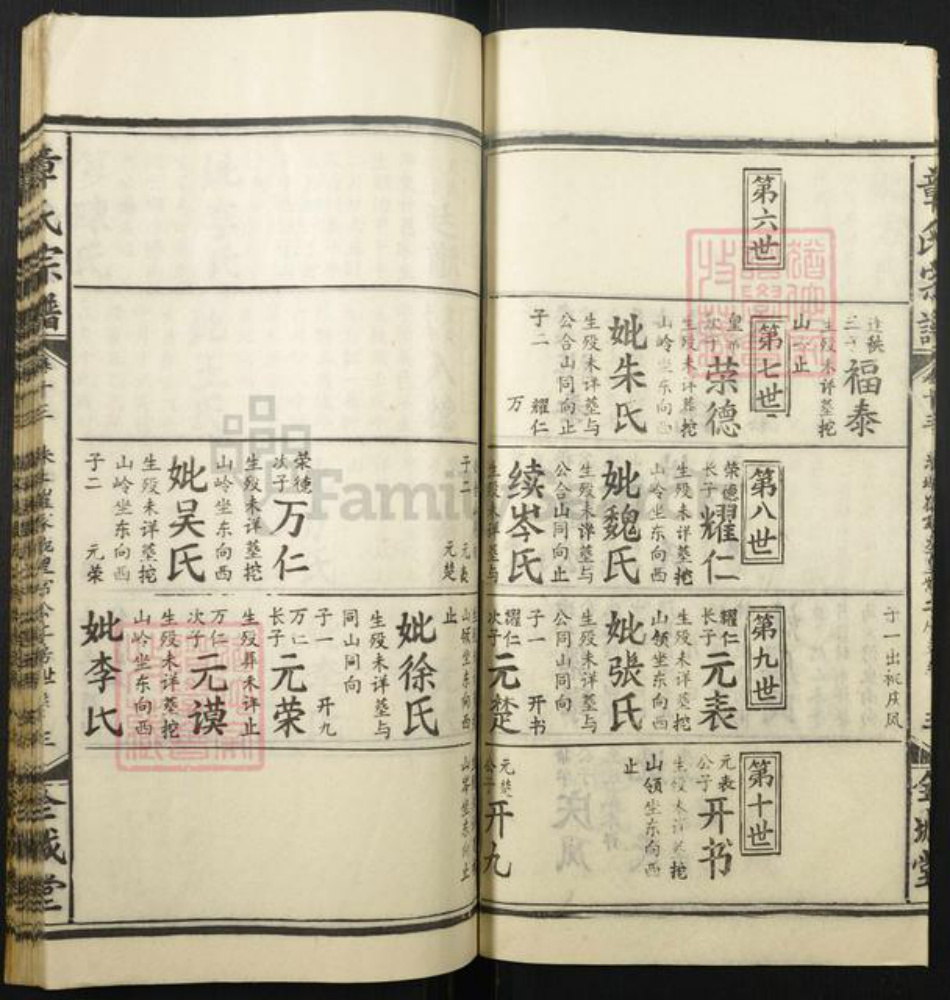 章氏宗譜
第六世
福泰
生殁未详墓挖
山 止
第七世
次子
荣德
生殁未详墓挖
山岭坐东向
妣朱氏
生殁未详墓与
公合山同向止
子二 耀仁
万
第八世
荣德
长子
耀仁
生殁未详墓挖
山岭坐东向西
妣魏氏
生殁未详墓与
公合山同向止
续岑氏
生殁未详墓与
子二 元表
元楚
荣德
次子
万仁
生殁未详墓挖
山岭坐东向西
妣吴氏
生殁未详墓挖
山岭坐东向西
子二 元荣
子一出祧庆风
第九世
耀仁
长子
元表
生殁未详墓挖
山领坐东向西
妣張氏
生殁未详墓与
公同山同向
子一 开书
耀仁
次子
元楚
山领坐东向西
止
妣徐氏
生殁未详墓与
同山同向
子一 开九
万仁
长子
元荣
生殁葬未详止
万仁
次子
元谟
生殁未详墓挖
山岭坐东向西
妣李氏
第十世
元表
公子
开书
生殁未详墓挖
山领坐东向西
止
元楚
公子
开九
章氏宗譜
卷十三
三
全城堂
Famil